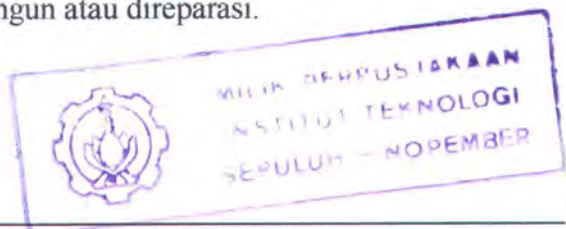 ngun atau direparasi.
MILIK PERPUSTAKAAN
INSTITUT TEKNOLOGI
SEPULUH – NOPEMBER